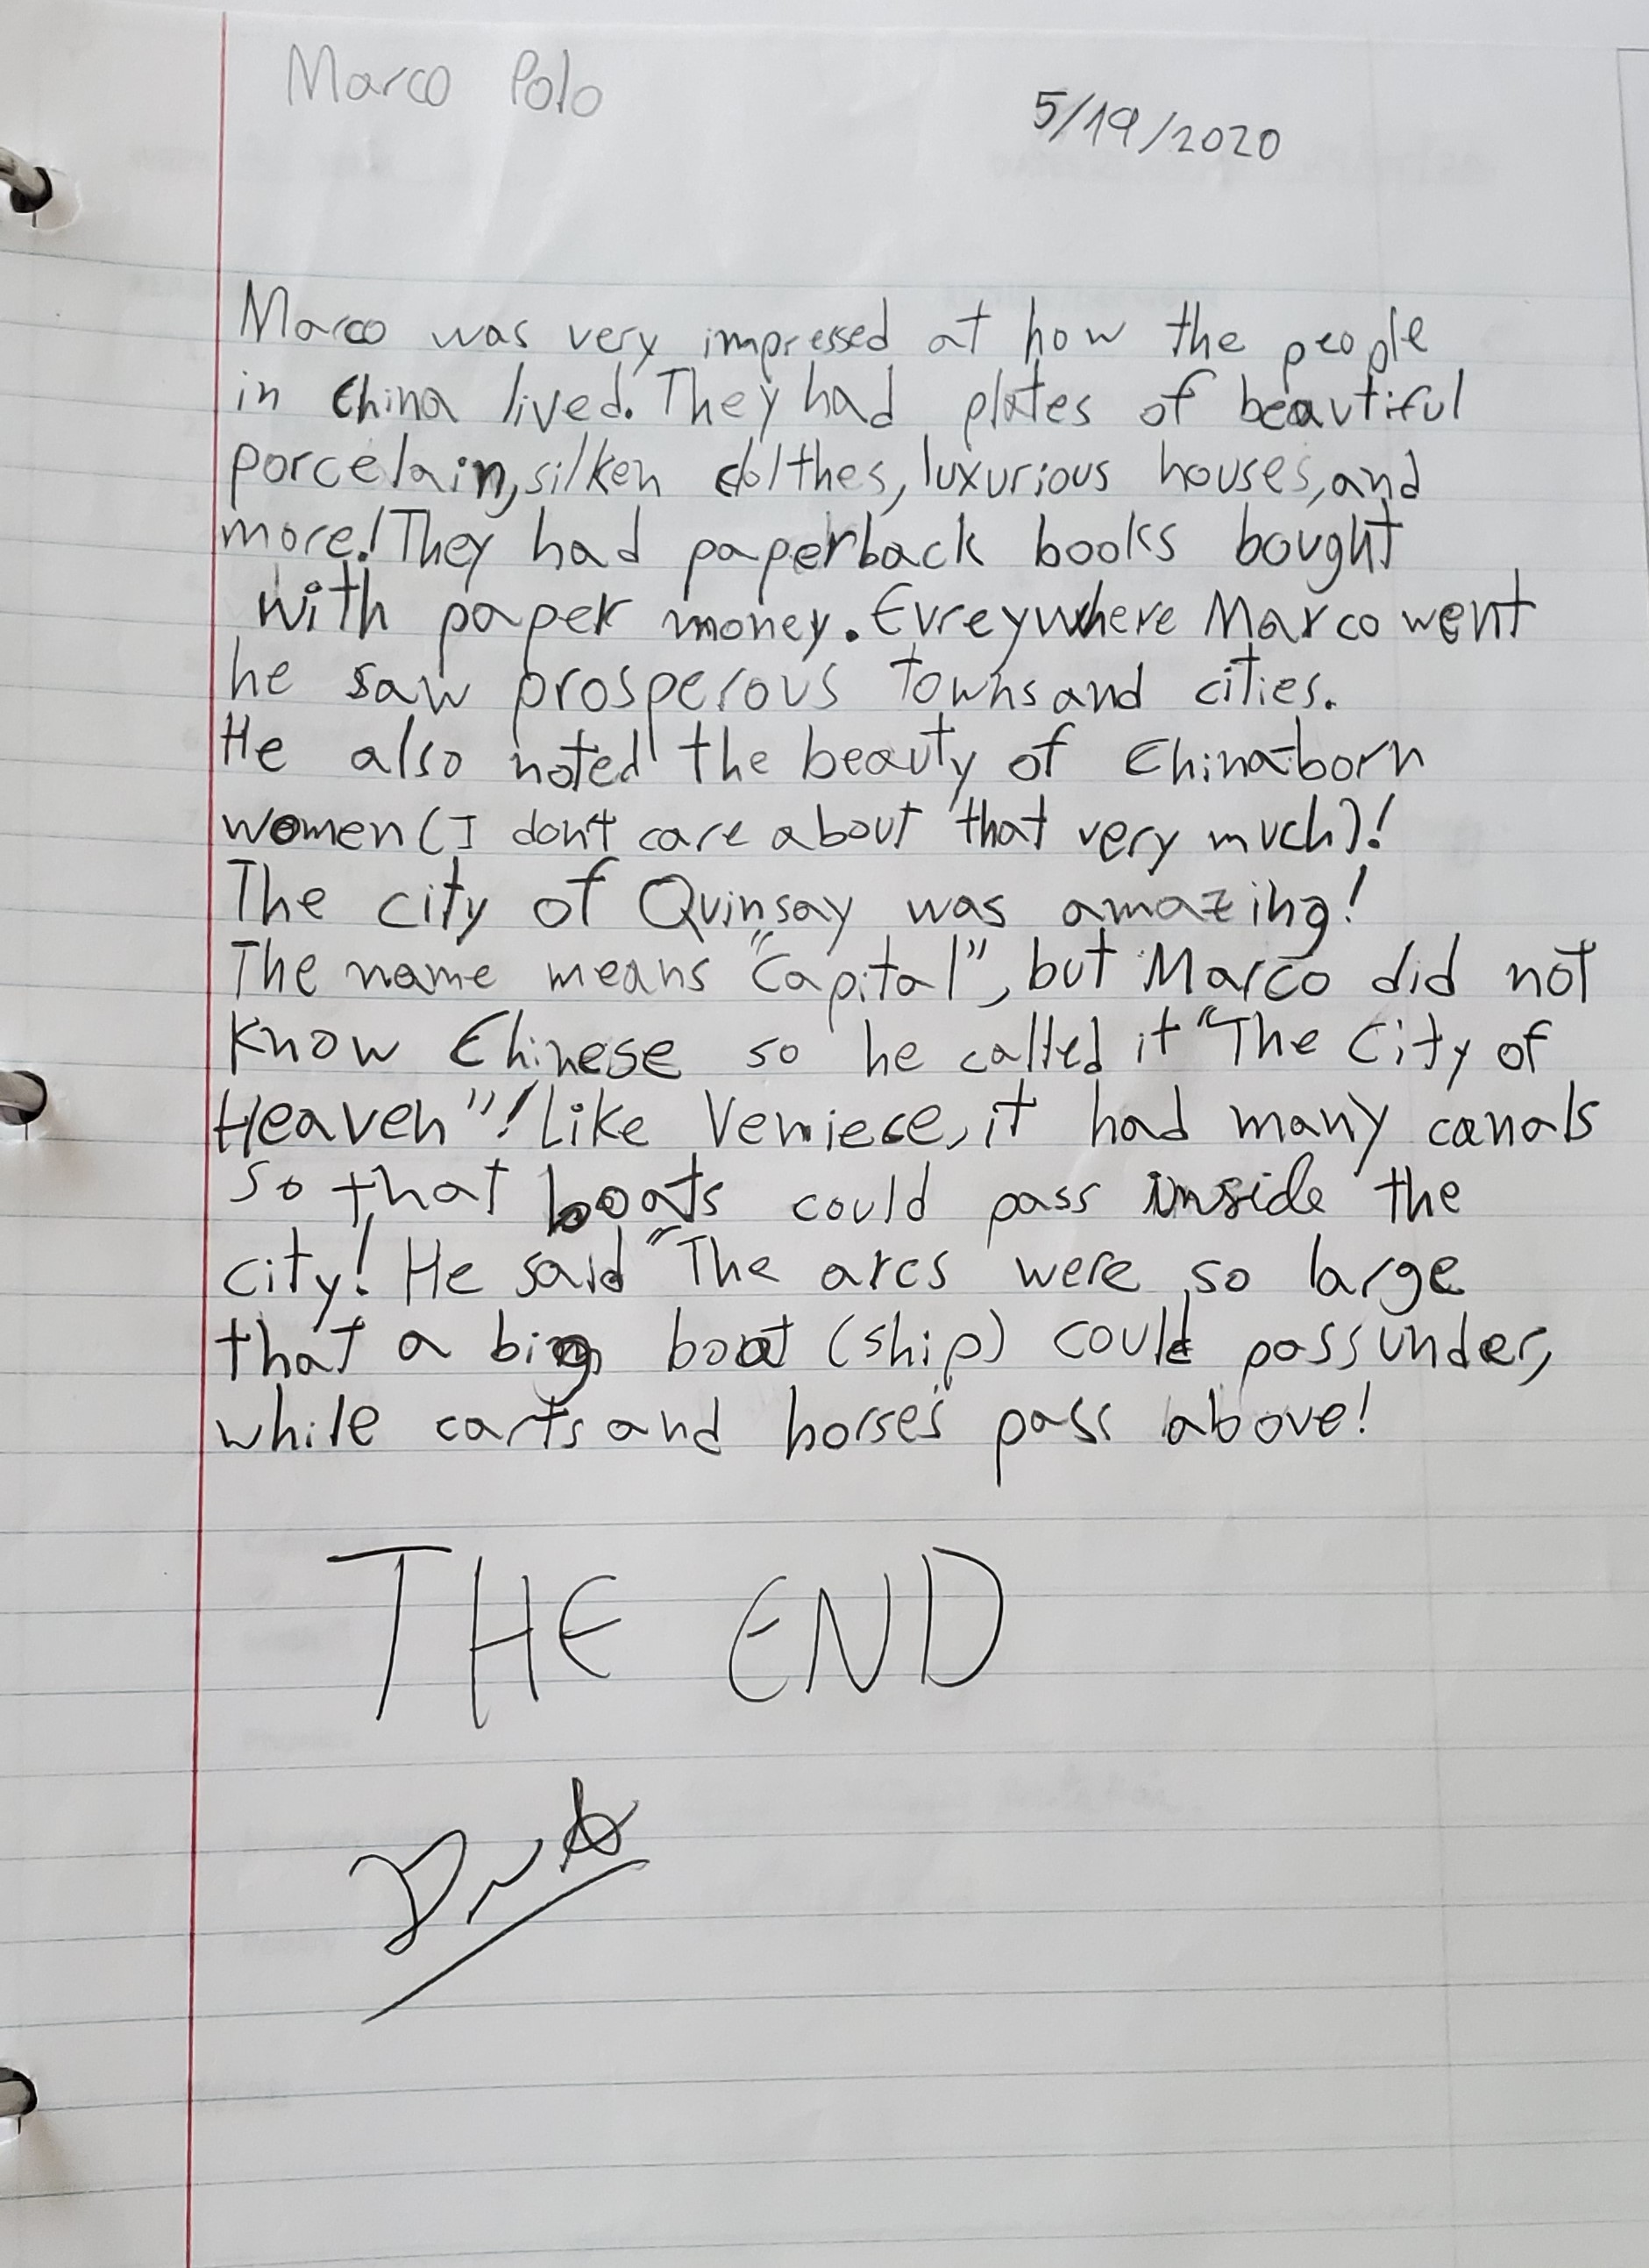 Marco Polo
5/19/2020
Marco was very impressed at how the people
in China lived. They had plates of beautiful
porcelain, silken clolthes, luxurious houses, and
more! They had paperback books bought
with paper money. Evreywhere Marco went
he saw prosperous towns and cities.
He also noted the beauty of China-born
women (I don't care about that very much)!
The city of Quinsay was amazing!
The name means "Capital", but Marco did not
know Chinese so he called it "The City of
Heaven"! Like Veniece, it had many canals
so that boats could pass inside the
city! He said "The arcs were so large
that a big boat (ship) could pass under,
while carts and horses pass above!
THE END